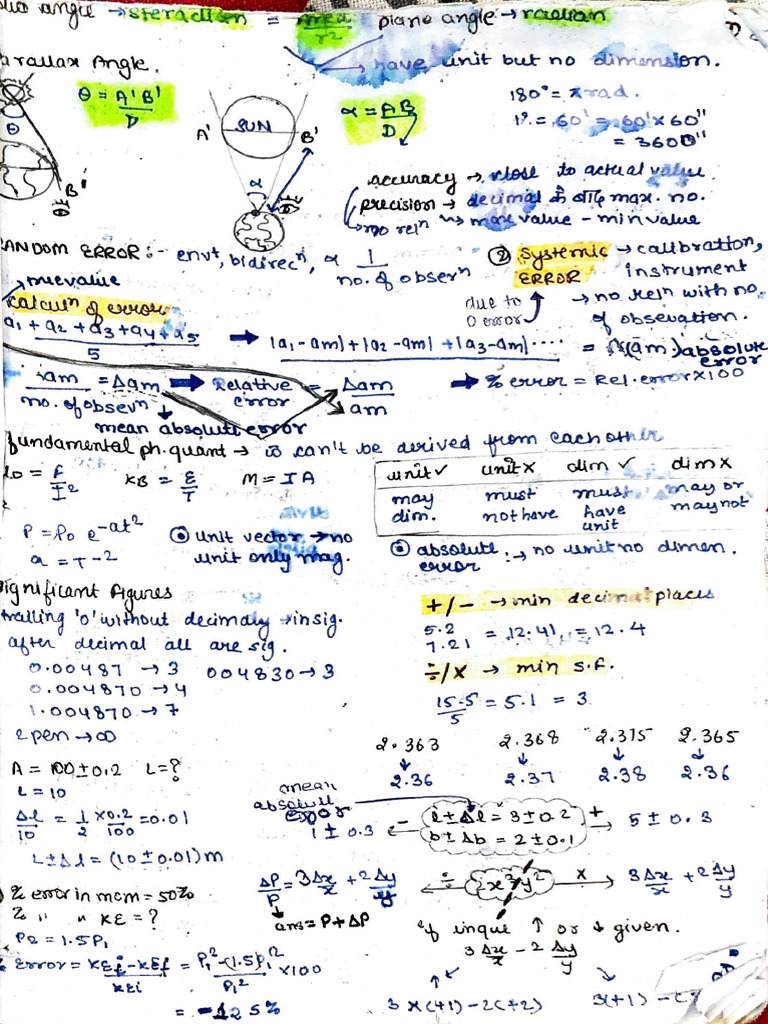 angle → steradian = area/r² plane angle → radian
arallax Angle. have unit but no dimension.
θ = A'B'/D
α = AB/D
180° = π rad.
1° = 60' = 60' × 60''
= 3600''
A' SUN B'
θ
α
B'
accuracy → close to actual value
precision → decimal के बाद max. no.
no relⁿ → max value - min value
ANDOM ERROR :- envᵗ, bidirecⁿ, α 1/no. of obserⁿ
② Systemic ERROR → calibration, instrument
due to 0 error
→ no. reln with no. of obsevation.
truevalue
calcuⁿ of error
a₁ + a₂ + a₃ + a₄ + a₅ / 5 → |a₁ - am| + |a₂ - am| + |a₃ - am| .... = (am) absolute error
am / no. of observⁿ = Δam → Relative error = Δam/am → % error = Rel. error × 100
mean absolute error
fundamental ph. quant → can't be derived from each other
= F/I² KB = E/T M = IA
unit ✓ unit × dim ✓ dim ×
may dim. must not have must have unit may or may not
P = P₀ e^-at²
a = T⁻²
unit vector → no unit only mag.
absolute error :→ no unit no dimen.
ignificant Figures
tralling '0' without decimaly → insig.
after decimal all are sig.
0.00487 → 3 004830 → 3
0.004870 → 4
1.004870 → 7
2 pen → ∞
+/- → min decimal places
5.2
7.21 = 12.41 = 12.4
÷/× → min s.f.
15.5/5 = 5.1 = 3
2.363 2.368 2.375 2.365
2.36 2.37 2.38 2.36
A = 100 ± 0.2 L = ?
L = 10
Δl/10 = 1/2 × 0.2/100 = 0.01
L ± Δl = (10 ± 0.01) m
mean absolute error
l ± Δl = 3 ± 0.2
b ± Δb = 2 ± 0.1
1 ± 0.3 ← - + → 5 ± 0.3
ΔP/P = 3Δx/x + 2Δy/y ← ÷ x³y² × → 3Δx/x + 2Δy/y
ans = P + ΔP
% error in mom = 50%
% " " KE = ?
P₂ = 1.5P₁
error = KEi - KEf / KEi = P₁² - (1.5P₁)² / P₁² × 100
= -125%
If inque ↑ or ↓ given.
3Δx/x - 2Δy/y
3×(+1) - 2(+2) 3(+1) -